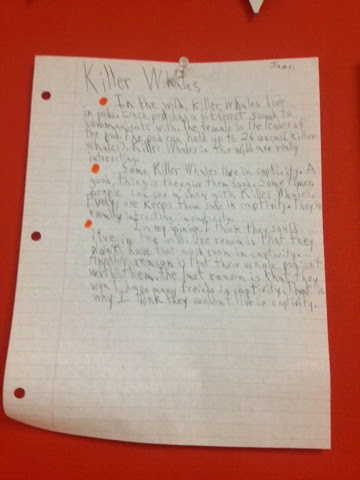 James
Killer Whales
In the wild, killer whales live
in pods. Each pod has a different sound to
communicate with. the female is the leader of
the pod. the pod can hold up to 20 orcas (killer
whales). Killer Whales in the wild are really
interesting.
Some Killer Whales live in captivity. A
good thing is they give them food. Some times,
people can see a show with Killer Whales.
keeps them safe in captivity.
really intresting in captivity.
In my opinion I think they
live in the wild. One reason is that they
won't have that much room in captivity.
Another reason is that their whole pod isn't
with them. the last reason is that they
won't have many freinds in captivity. That is
why I think they couldn't live in captivity.